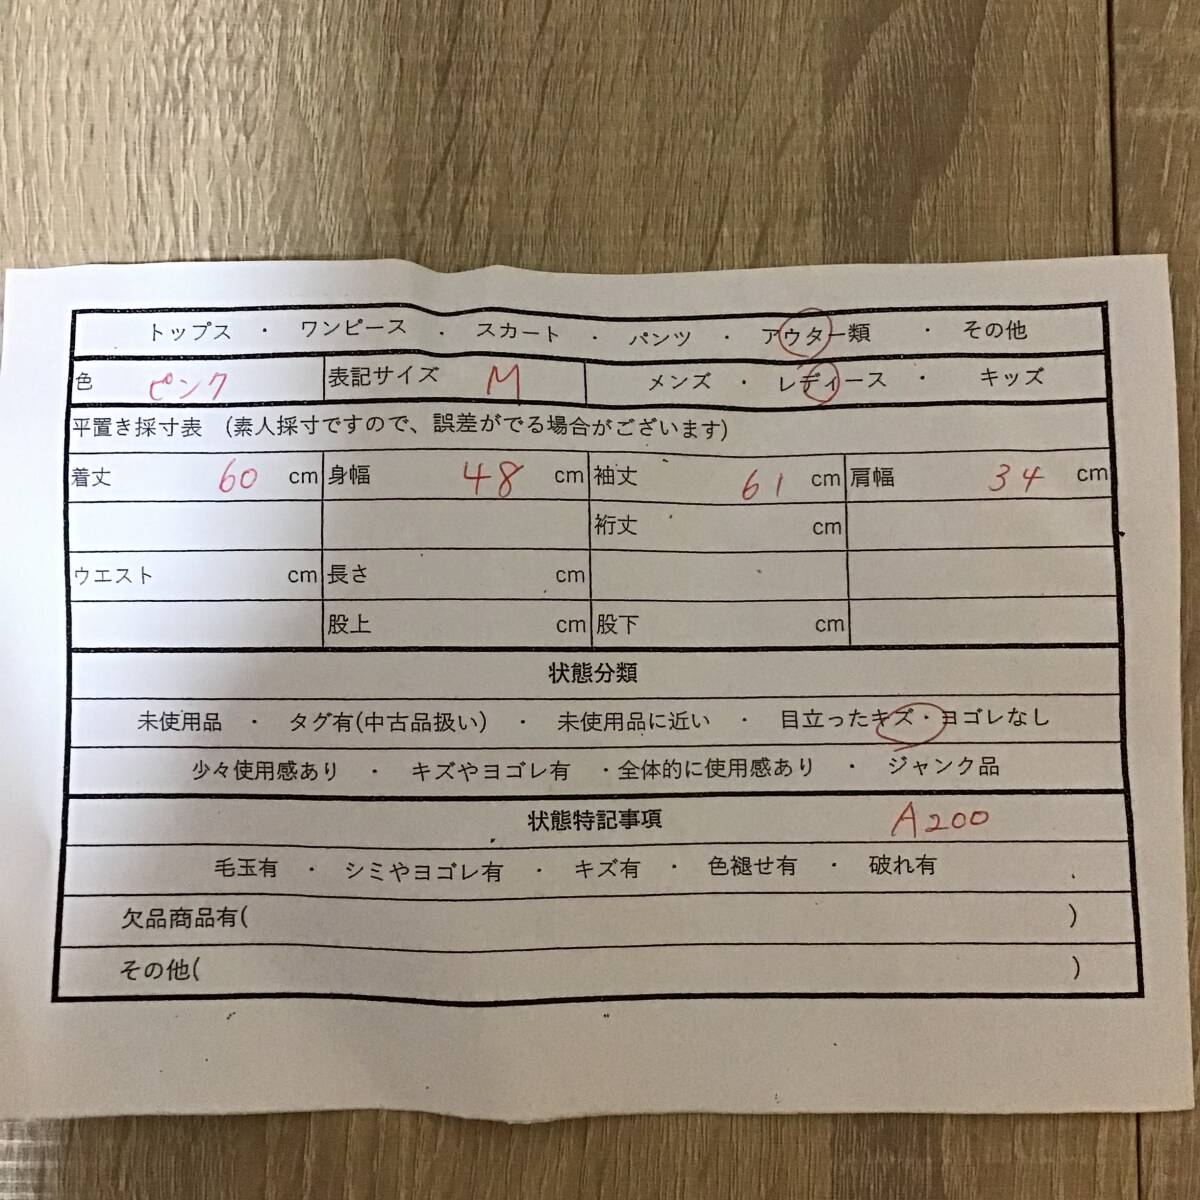 トップス ・ ワンピース ・ スカート ・ パンツ ・ アウター類 ・ その他
色 ピンク 表記サイズ M メンズ ・ レディース ・ キッズ
平置き採寸表 (素人採寸ですので、誤差がでる場合がございます)
着丈 60 cm 身幅 48 cm 袖丈 61 cm 肩幅 34 cm
裄丈 cm
ウエスト cm 長さ cm
股上 cm 股下 cm
状態分類
未使用品 ・ タグ有(中古品扱い) ・ 未使用品に近い ・ 目立ったキズ・ヨゴレなし
少々使用感あり ・ キズやヨゴレ有 ・全体的に使用感あり ・ ジャンク品
状態特記事項 A200
毛玉有 ・ シミやヨゴレ有 ・ キズ有 ・ 色褪せ有 ・ 破れ有
欠品商品有( )
その他( )